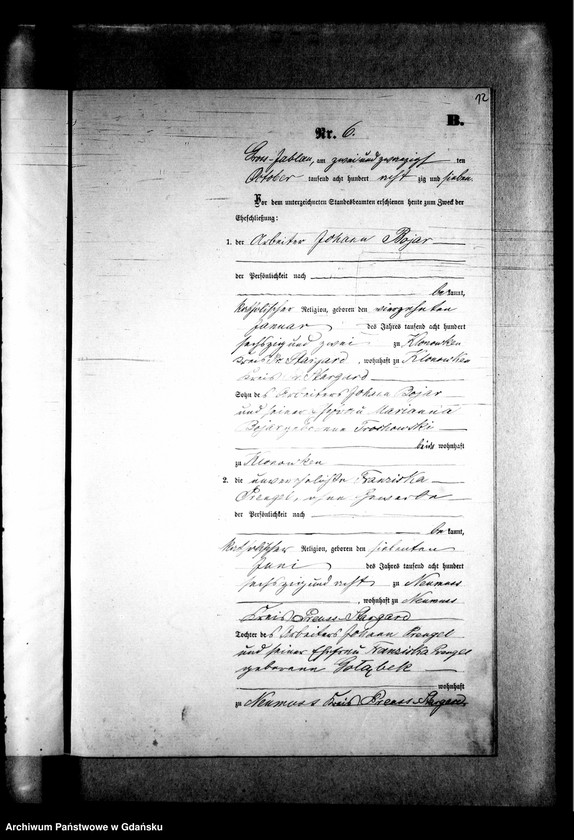 12
B.
Nr. 6.
Gross-Jablau, am zwei und zwanzigsten
October tausend acht hundert acht zig und sieben.
Vor dem unterzeichneten Standesbeamten erschienen heute zum Zweck der
Eheschließung:
1. der Arbeiter Johann Bojar
der Persönlichkeit nach
be kannt,
katholischer Religion, geboren den vierzehnten
Januar des Jahres tausend acht hundert
sechszig und zwei zu Klonowken
Kreis Pr. Stargard, wohnhaft zu Klonowken
Kreis Pr. Stargard
Sohn des Arbeiters Johann Bojar
und seiner Frau Marianna
Bojar geborene
beide wohnhaft
zu Klonowken
2. die unverehelichte Franziska
Prengel, ohne Gewerbe
der Persönlichkeit nach
be kannt,
katholischer Religion, geboren den siebenten
Juni des Jahres tausend acht hundert
sechszig und acht zu Neumuss
, wohnhaft zu Neumuss
Kreis Preuss. Stargard
Tochter des Arbeiters Johann Prengel
und seiner Ehefrau Franziska Prengel
geborene Gołąbek
wohnhaft
zu Neumuss Kreis Preuss. Stargard.
Archiwum Państwowe w Gdańsku